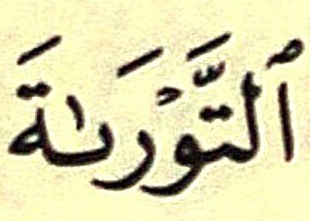 ٱلتَّوْرَىٰةَ